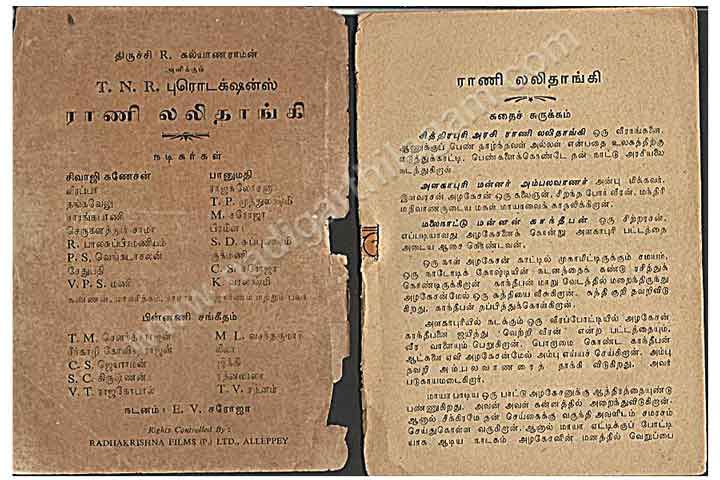 திருச்சி R. கல்யாணராமன்
அளிக்கும்
T. N. R. புரொடக்ஷன்ஸ்
ராணி லலிதாங்கி
நடிகர்கள்
சிவாஜி கணேசன்
வீரப்பா
தங்கவேலு
சாரங்கபாணி
R. பாலசுப்பிரமணியம்
P. S. வெங்கடாசலன்
சேதுபதி
V. P. S. மணி
பானுமதி
ராஜசுலோசனா
T. P. முத்துலக்ஷ்மி
M. சரோஜா
பிரமிளா
S. D. சுப்புலக்ஷ்மி
ருக்மணி
C. S. சரோஜா
K. வரலக்ஷ்மி
பின்னணி சங்கீதம்
T. M. சௌந்தரராஜன்
சீர்காழி கோவிந்தராஜன்
C. S. ஜெயராமன்
S. C. கிருஷ்ணன்
V. T. ராஜகோபால்
M. L. வசந்தகுமாரி
லீலா
ஜிக்கி
ரத்னமாலா
நடனம்: E. V. சரோஜா
Rights Controlled By:
RADHAKRISHNA FILMS (P) LTD., ALLEPPEY
ராணி லலிதாங்கி
கதைச் சுருக்கம்
சித்திரபுரி அரசி ராணி லலிதாங்கி ஒரு வீராங்கனை.
ஆணுக்குப் பெண் தாழ்ந்தவள் அல்லள் என்பதை உலகத்திற்கு
எடுத்துக்காட்டி, பெண்களைக்கொண்டே தன் நாட்டு அரசியலை
நடத்துகிறாள்
அளகாபுரி மன்னர் அம்பலவாணர் அன்பு மிக்கவர்.
இளவரசன் அழகேசன் ஒரு கலைஞன், சிறந்த போர் வீரன். மந்திரி
மதிவாணருடைய மகள் மாயாவைக் காதலிக்கிறான்.
மலைநாட்டு மன்னன் காந்தீபன் ஒரு சிற்றரசன்.
எப்படியாவது அழகேசனைக் கொன்று அளகாபுரி பட்டத்தை
அடைய ஆசை கொண்டவன்.
ஒரு நாள் அழகேசன் காட்டில் முகாமிட்டிருக்கும் சமயம்,
ஒரு நாடோடிக் கோஷ்டியின் கடனத்தைக் கண்டு ரசித்துக்
கொண்டிருக்கிறான் காந்தீபன் மாறு வேடத்தில் மறைந்திருந்து
அழகேசன்மேல் ஒரு கத்தியை வீசுகிறான். கத்தி குறி தவறிவிடு
கிறது, காந்தீபன் தப்பித்துக்கொள்கிறான்.
அளகாபுரியில் நடக்கும் ஒரு வீரப்போட்டியில் அழகேசன்
காந்தீபனை ஜயித்து "வெற்றி வீரன்" என்ற பட்டத்தையும்,
வீர வாளையும் பெறுகிறான். பொறாமை கொண்ட காந்தீபன்
ஆட்களை ஏவி அழகேசன்மேல் அம்பு எய்யச் செய்கிறான். அம்பு
தவறி அம்பலவாணரைத் தாக்கி விடுகிறது. அவர்
படுகாயமடைகிறார்.
மாயா பாடிய ஒரு பாட்டு அழகேசனுக்கு ஆத்திரத்தையுண்டு
பண்ணுகிறது. அவன் அவள் கன்னத்தில் அறைந்துவிடுகிறான்.
ஆனால் சீக்கிரமே தன் செய்கைக்கு வருந்தி அவளிடம் சமரசம்
செய்துகொள்ள வருகிறான். ஆனால் மாயா எட்டிக்குப் போட்டி
யாக ஆடிய நாடகம் அழகேசனின் மனத்தில் வெறுப்பை